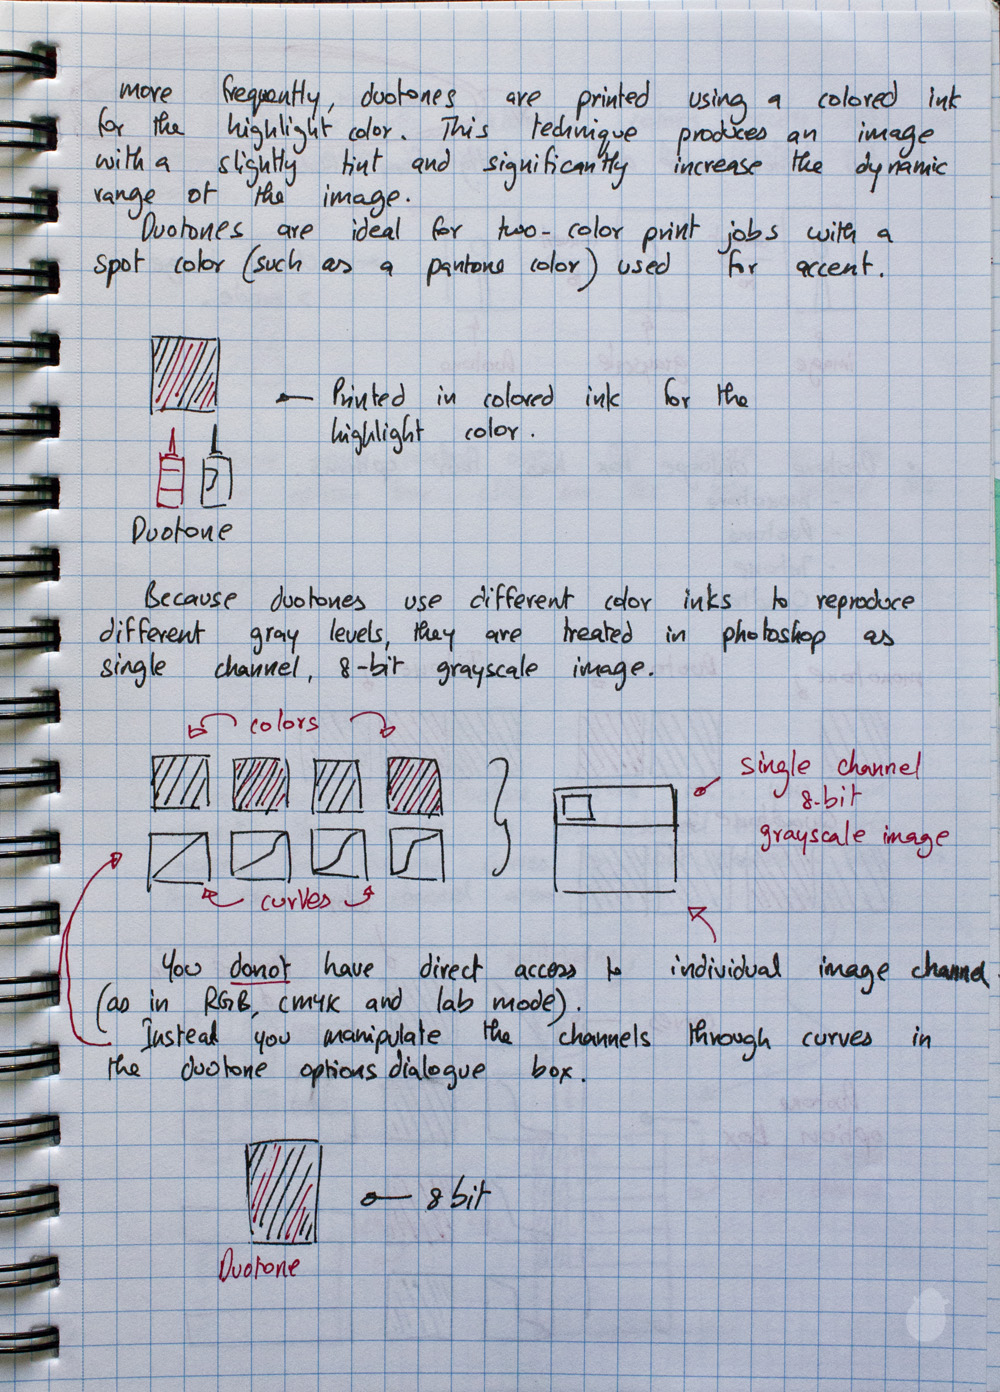 more frequently, duotones are printed using a colored ink
for the highlight color. This technique produces an image
with a slightly tint and significantly increase the dynamic
range of the image.
Duotones are ideal for two-color print jobs with a
spot color (such as a pantone color) used for accent.
Printed in colored ink for the
highlight color.
Duotone
Because duotones use different color inks to reproduce
different gray levels, they are treated in photoshop as
single channel, 8-bit grayscale image.
colors
single channel
8-bit
grayscale image
curves
You donot have direct access to individual image channel.
(as in RGB, CMYK and lab mode).
Instead you manipulate the channels through curves in
the duotone options dialogue box.
8 bit
Duotone